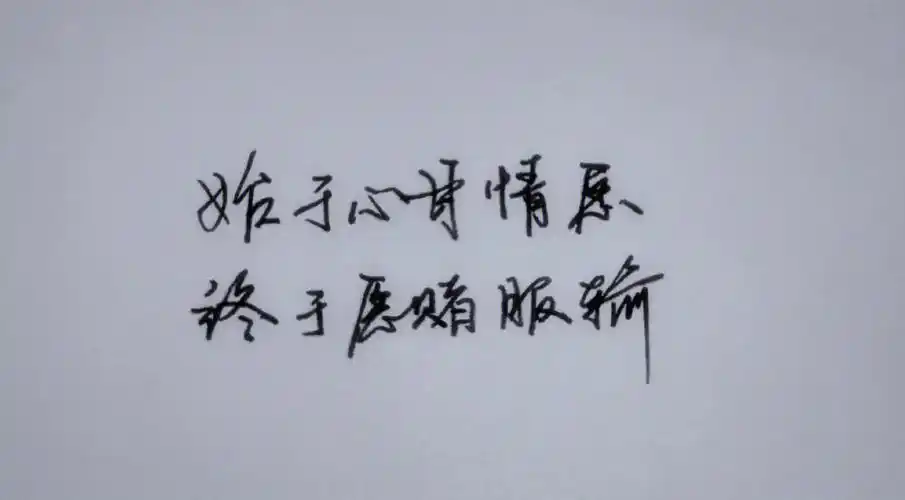 始于心甘情愿
终于愿赌服输